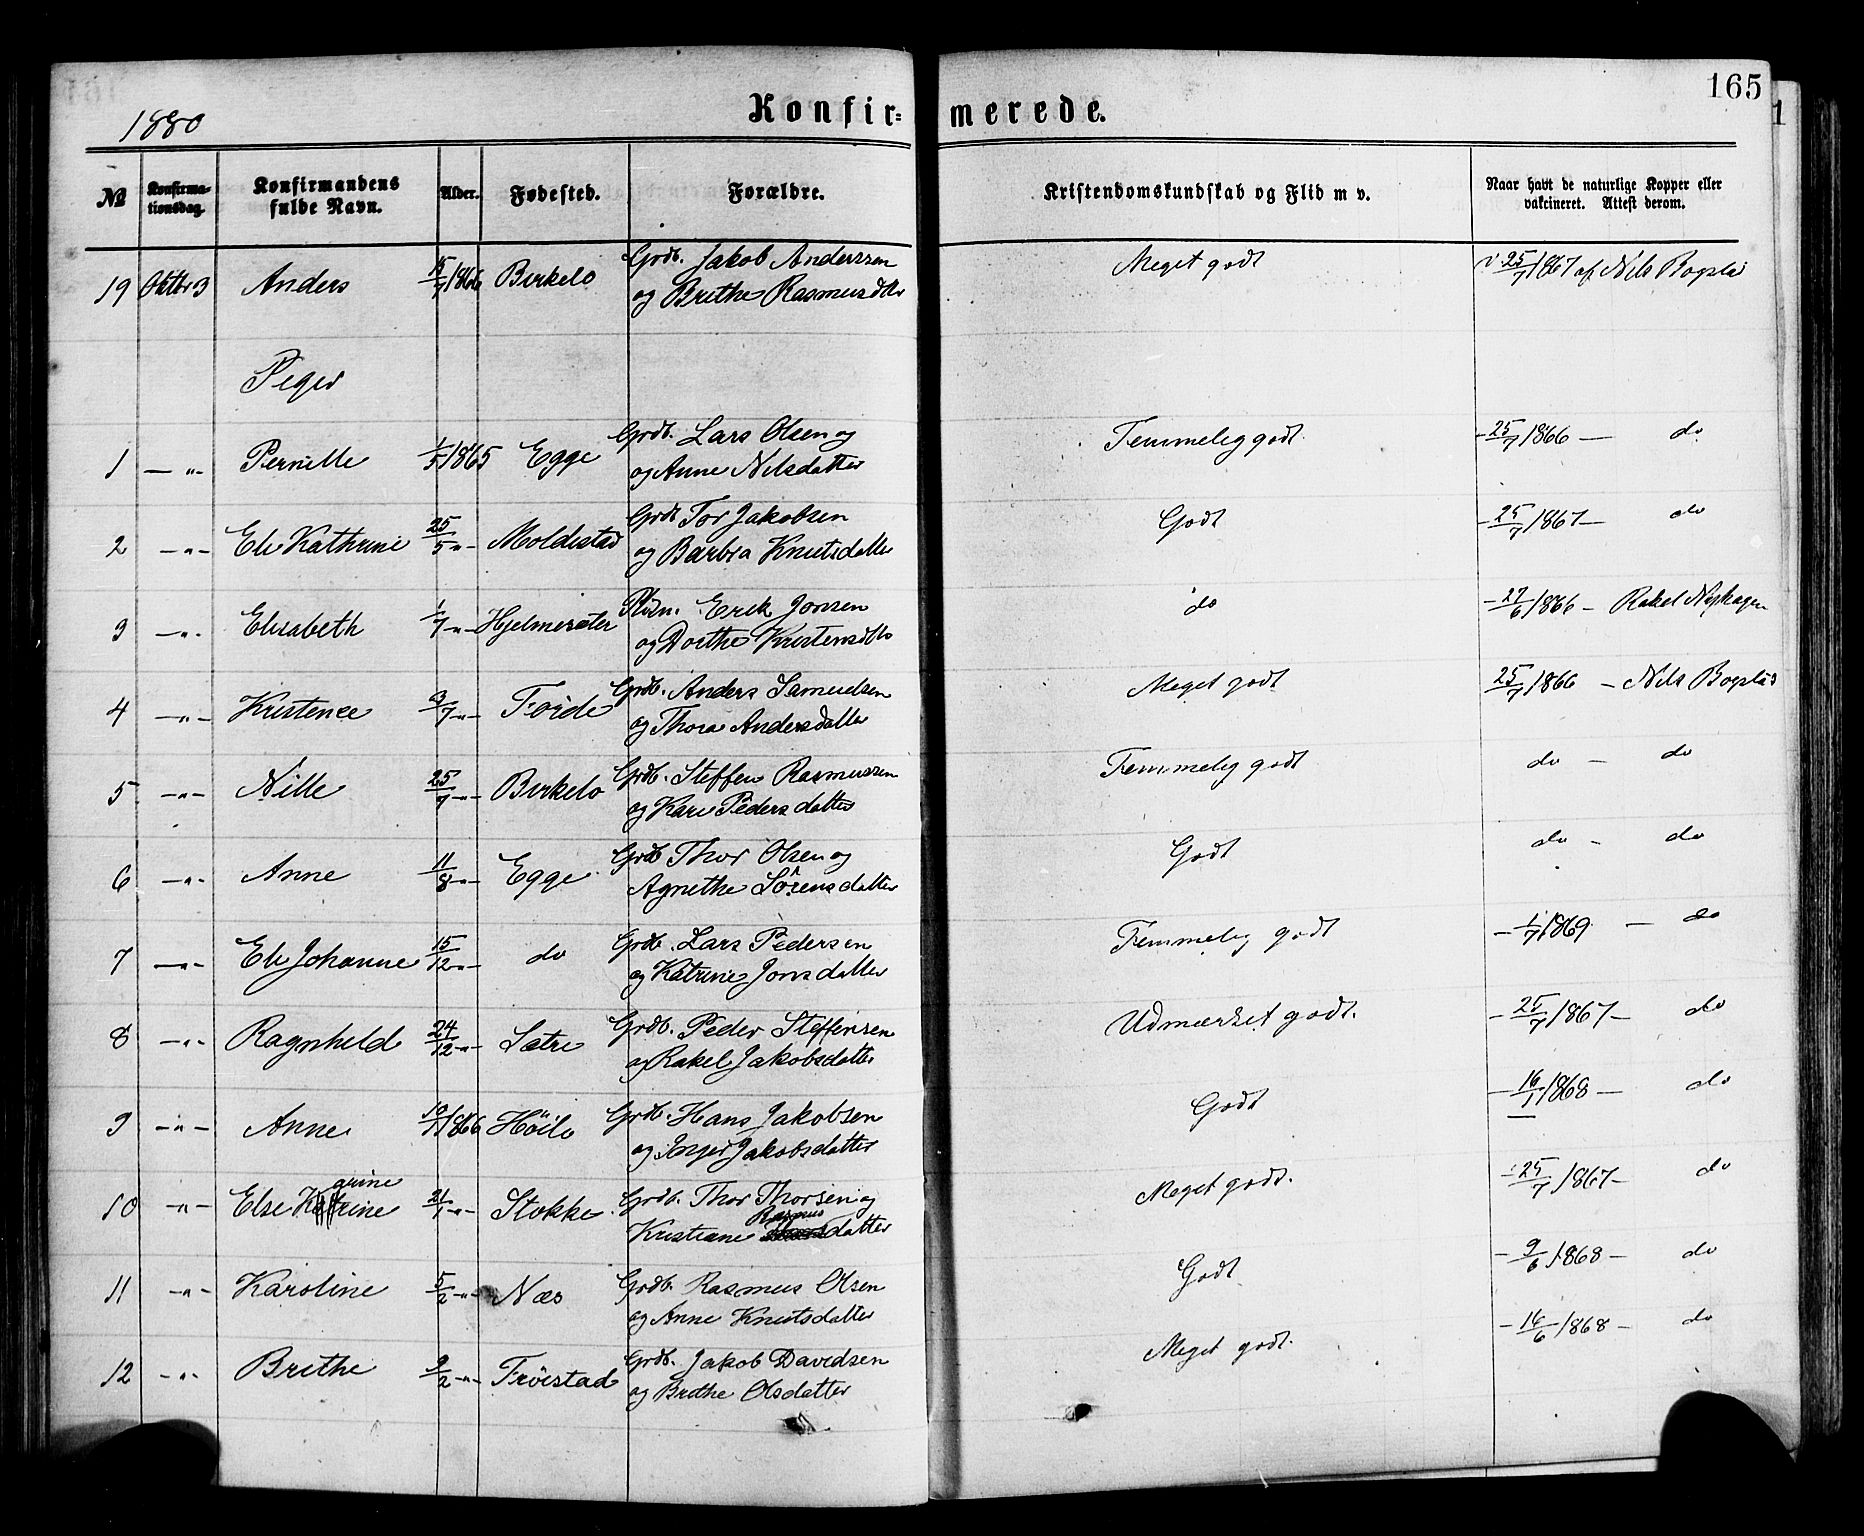 165
1880
Konfir= merede.
№ Konfirma-tionsdag. Konfirmandens fulde Navn. Alder. Fødested. Forældre. Kristendomskundskab og Flid m v. Naar havt de naturlige Kopper eller vakcineret. Attest derom.
19 Oktbr 3 Anders 15/7 1866 Birkelo Grdb. Jakob Anderssen Meget godt 25/7 1867 af Nils
og Brithe Rasmusdtr
Piger
1 — " - Pernille 1/5 1865 Egge Grdb. Lars Olsen og Temmelig godt. - 25/7 1866 — do
og Anne Nilsdatter
2 - " - Eli Kathrine 25/5 " - Moldestad Grdb Tor Jakobsen Godt - 25/7 1867 - do
og Barbra Knutsdatter
3 - " - Elisabeth 1/7 " - Hjelmesæter Plds. Erik Jonsen do - 27/6 1866 - Rakel
og Dorthe Kristensdtr
4 - " - Kristence 3/7 " - Förde Grdb. Anders Samuelsen Meget godt 25/7 1866 - Nils
og Thora Andersdatter
5 - " - Nille 25/7 " - Birkelo Grdb. Steffen Rasmussen Temmelig godt do - do
og Kari Pedersdatter
6 - " - Anne 11/8 " - Egge Grdb Thor Olsen og Godt do - do
Agnethe Sörensdatter
7 - " - Eli Johanne 15/12 " - do Grdb. Lars Pedersen Temmelig godt - 1/7 1869 - do
og Katrine Jonsdatter
8 - " - Ragnhild 24/12 " - Sætre Grdb. Peder Steffensen Udmærket godt. - 25/7 1867 - do
og Rakel Jakobsdatter
9 - " - Anne 10/1 1866 Höilo Grdb. Hans Jakobsen Godt - 16/7 1868 - do
og Inger Jakobsdatter
grine
10 - " - Else Katrine 21/1 " - Stokke Grdb. Thor Thorsen og Meget godt. - 25/7 1867 - do
Rasmus
Kristiane datter
11 - " - Karoline 5/2 " - Næs Grdb. Rasmus Olsen Godt - 9/6 1868 - do
og Anne Knutsdatter
12 - " - Brithe 9/2 " - Tröistad Grdb. Jakob Davidsen Meget godt. - 16/6 1868 - do
og Brithe Olsdatter